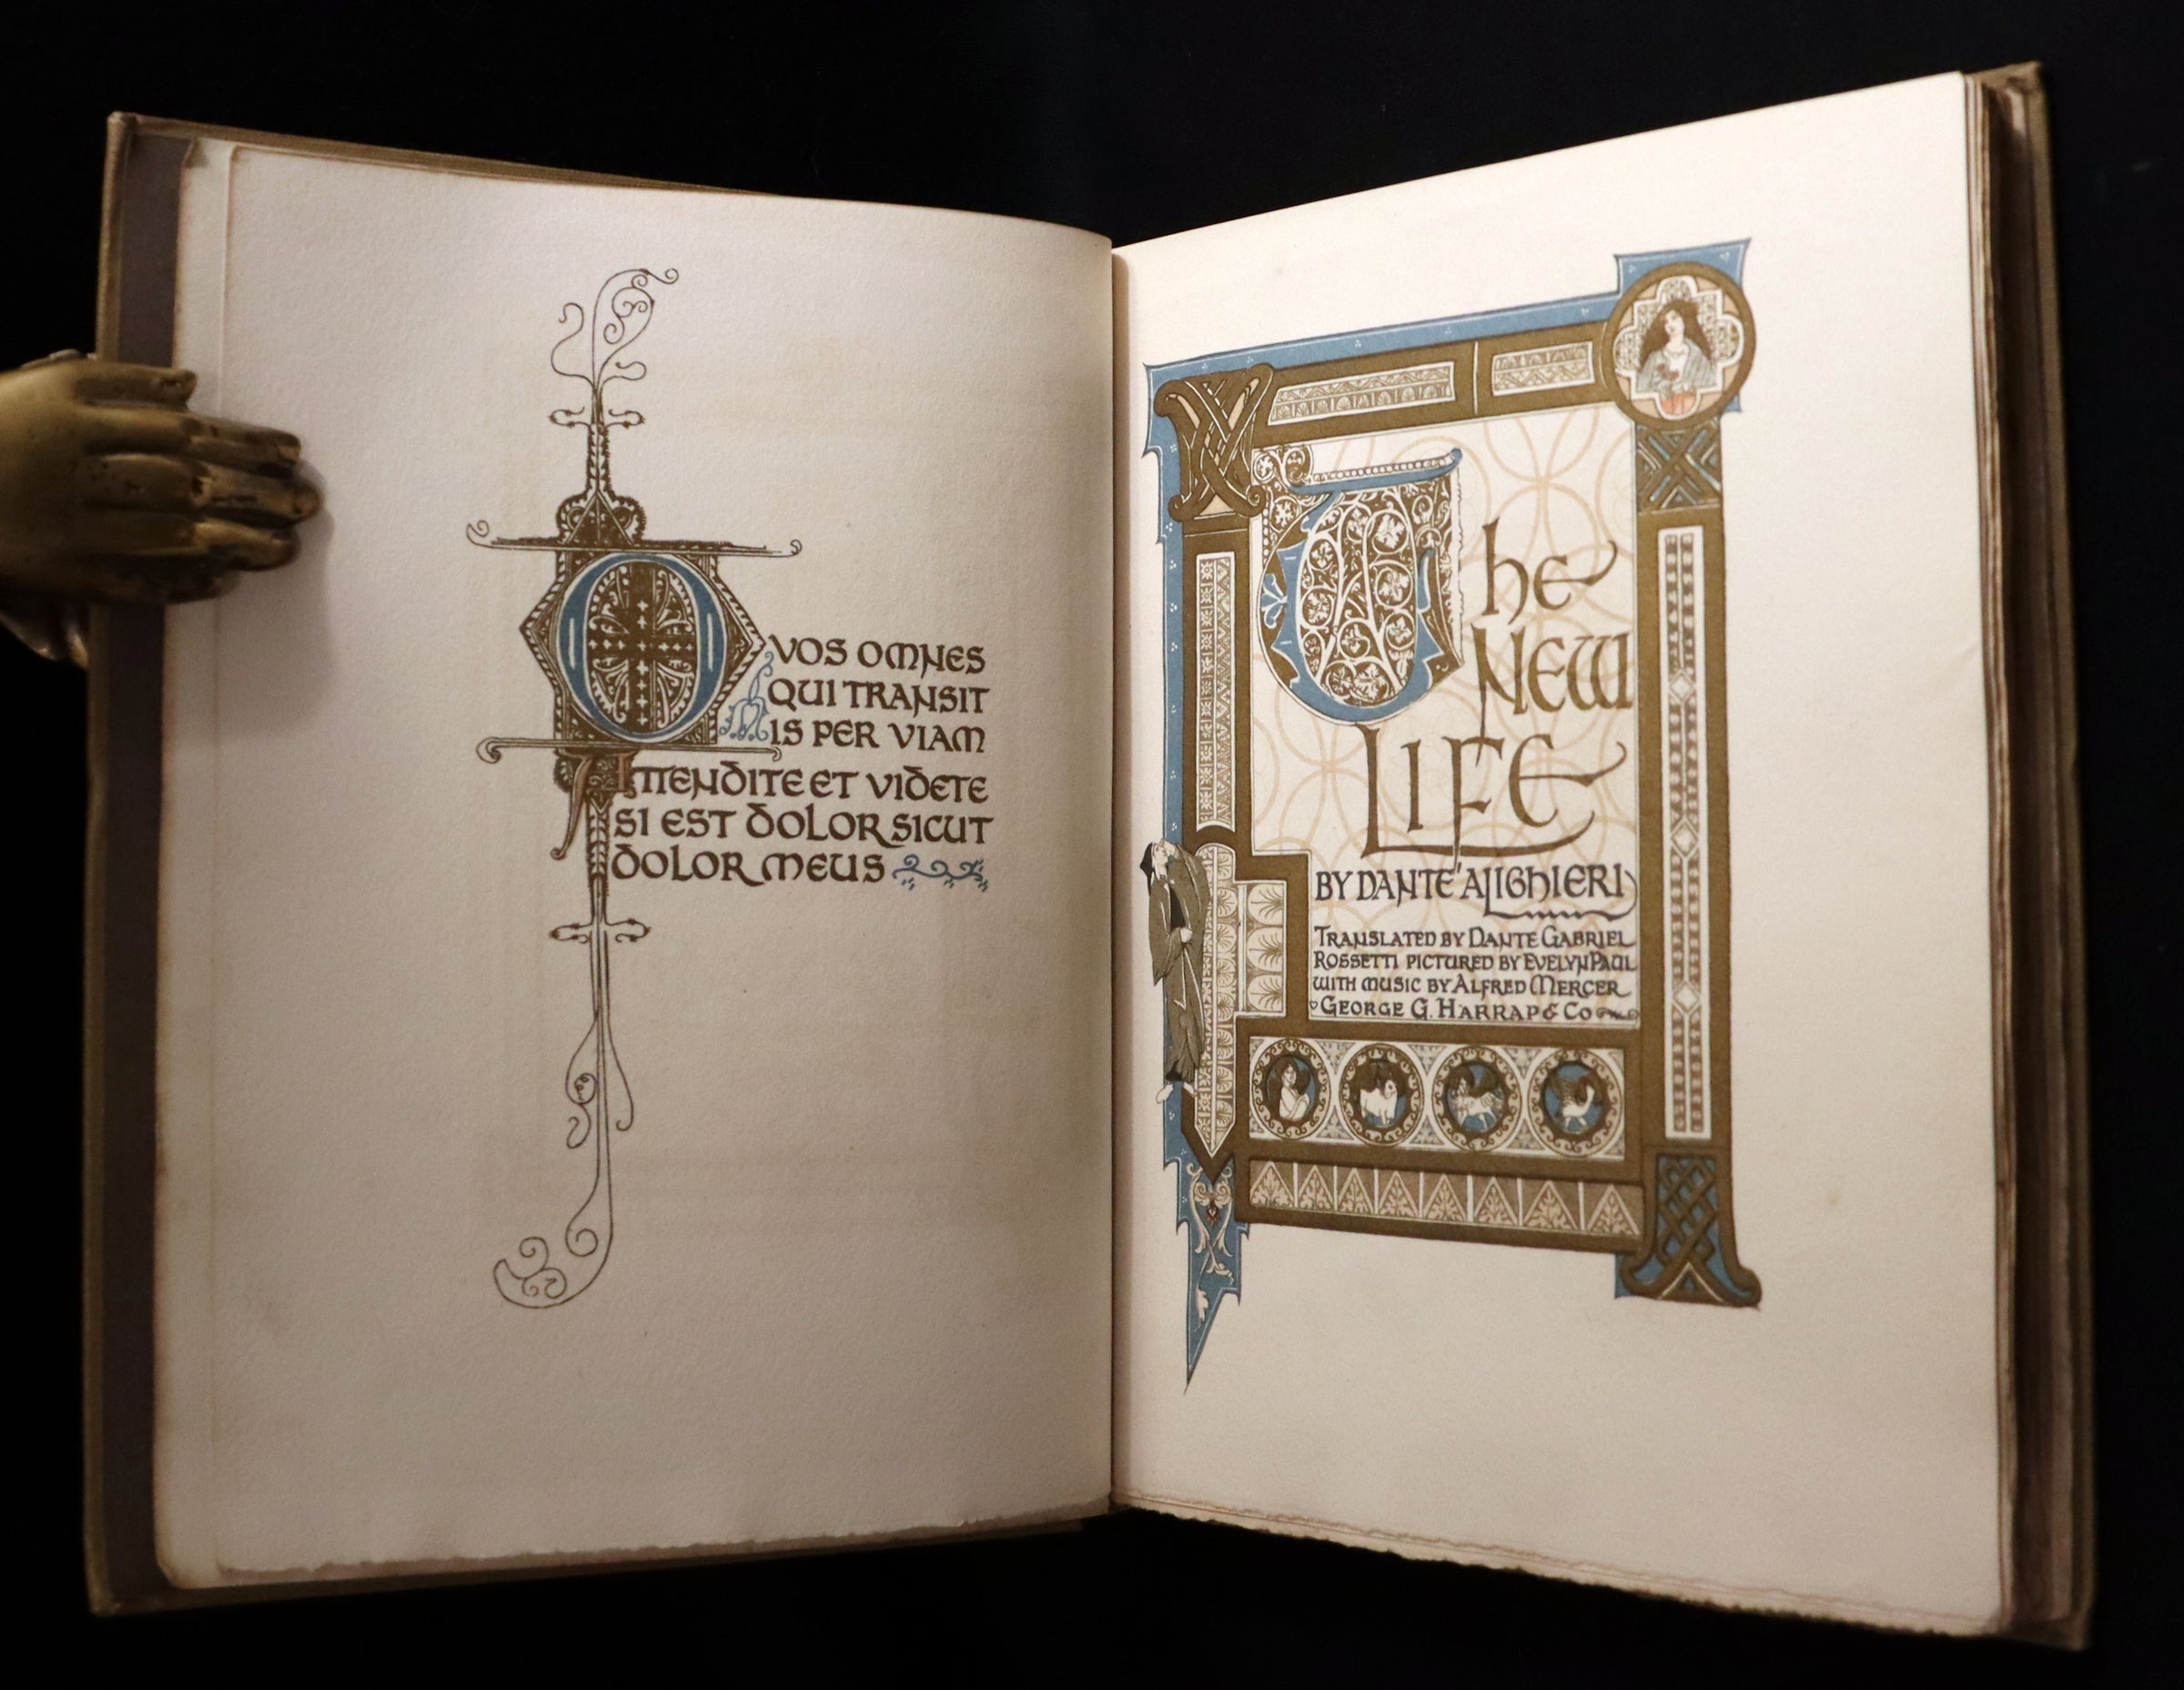 O VOS OMNES
QUI TRANSIT
IS PER VIAM
ATTENDITE ET VIDETE
SI EST DOLOR SICUT
DOLOR MEUS
The
NEW
LIFE
BY DANTE ALIGHIERI
TRANSLATED BY DANTE GABRIEL
ROSSETTI PICTURED BY EVELYN PAUL
WITH MUSIC BY ALFRED MERCER
GEORGE G. HARRAP & CO